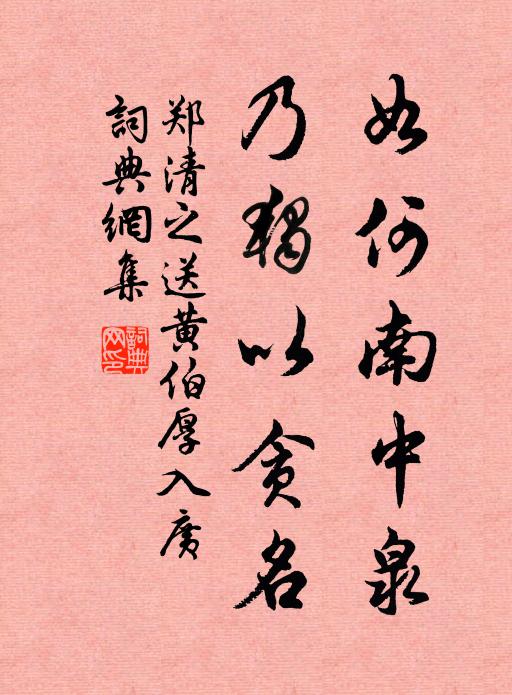 如何南中泉
乃独以贪名
郑清之送黄伯厚入广
詞典網集
詞典网印